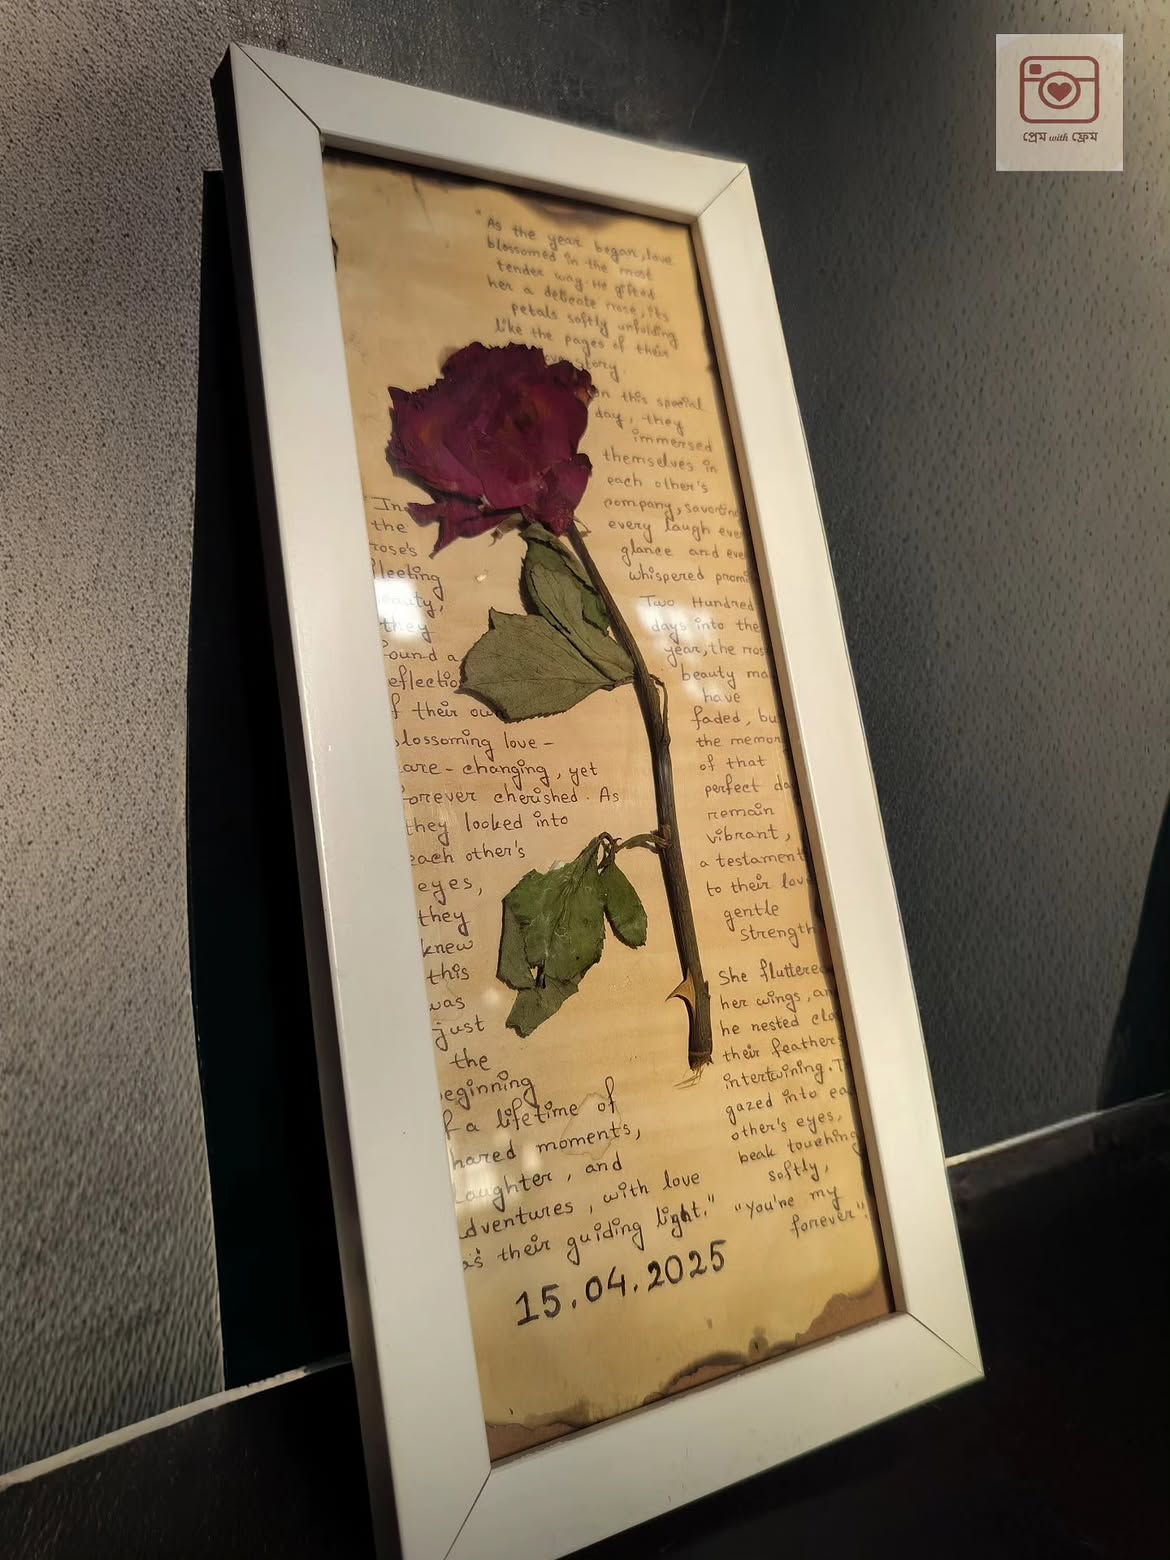 প্রেম with ফ্রেম
"As the year began, love
blossomed in the most
tender way. He gifted
her a delicate rose, its
petals softly unfolding
like the pages of their
story.
on this special
day, they
immersed
themselves in
each other's
company, savorin
every laugh eve
glance and eve
whispered promi
Two Hundred
days into the
year, the ros
beauty ma
have
faded, bu
the memor
of that
perfect da
remain
vibrant,
a testament
to their lov
gentle
strength
She fluttere
her wings, an
he nested clo
their feathers
intertwining. T
gazed into ea
other's eyes,
beak touching
softly,
"You're my
forever".
In
the
rose's
fleeting
eauty,
they
ound a
eflectio
f their ow
lossoming love -
are - changing, yet
orever cherished. As
they looked into
each other's
eyes,
they
knew
this
was
just
the
eginning
f a lifetime of
hared moments,
aughter, and
dventures, with love
as their guiding light."
15.04.2025